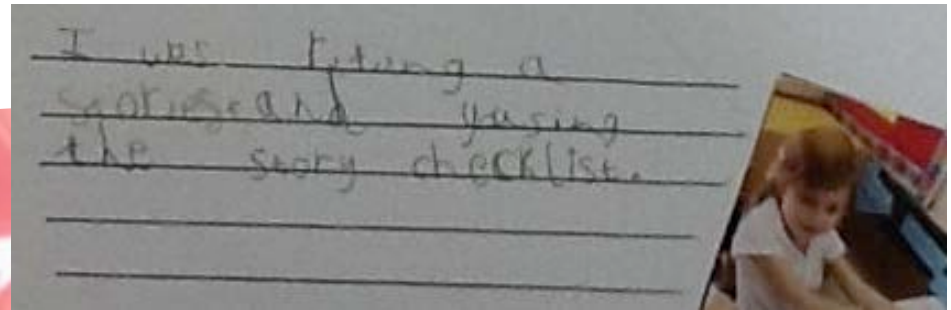 I was riting a
and yusing
the story checklist.